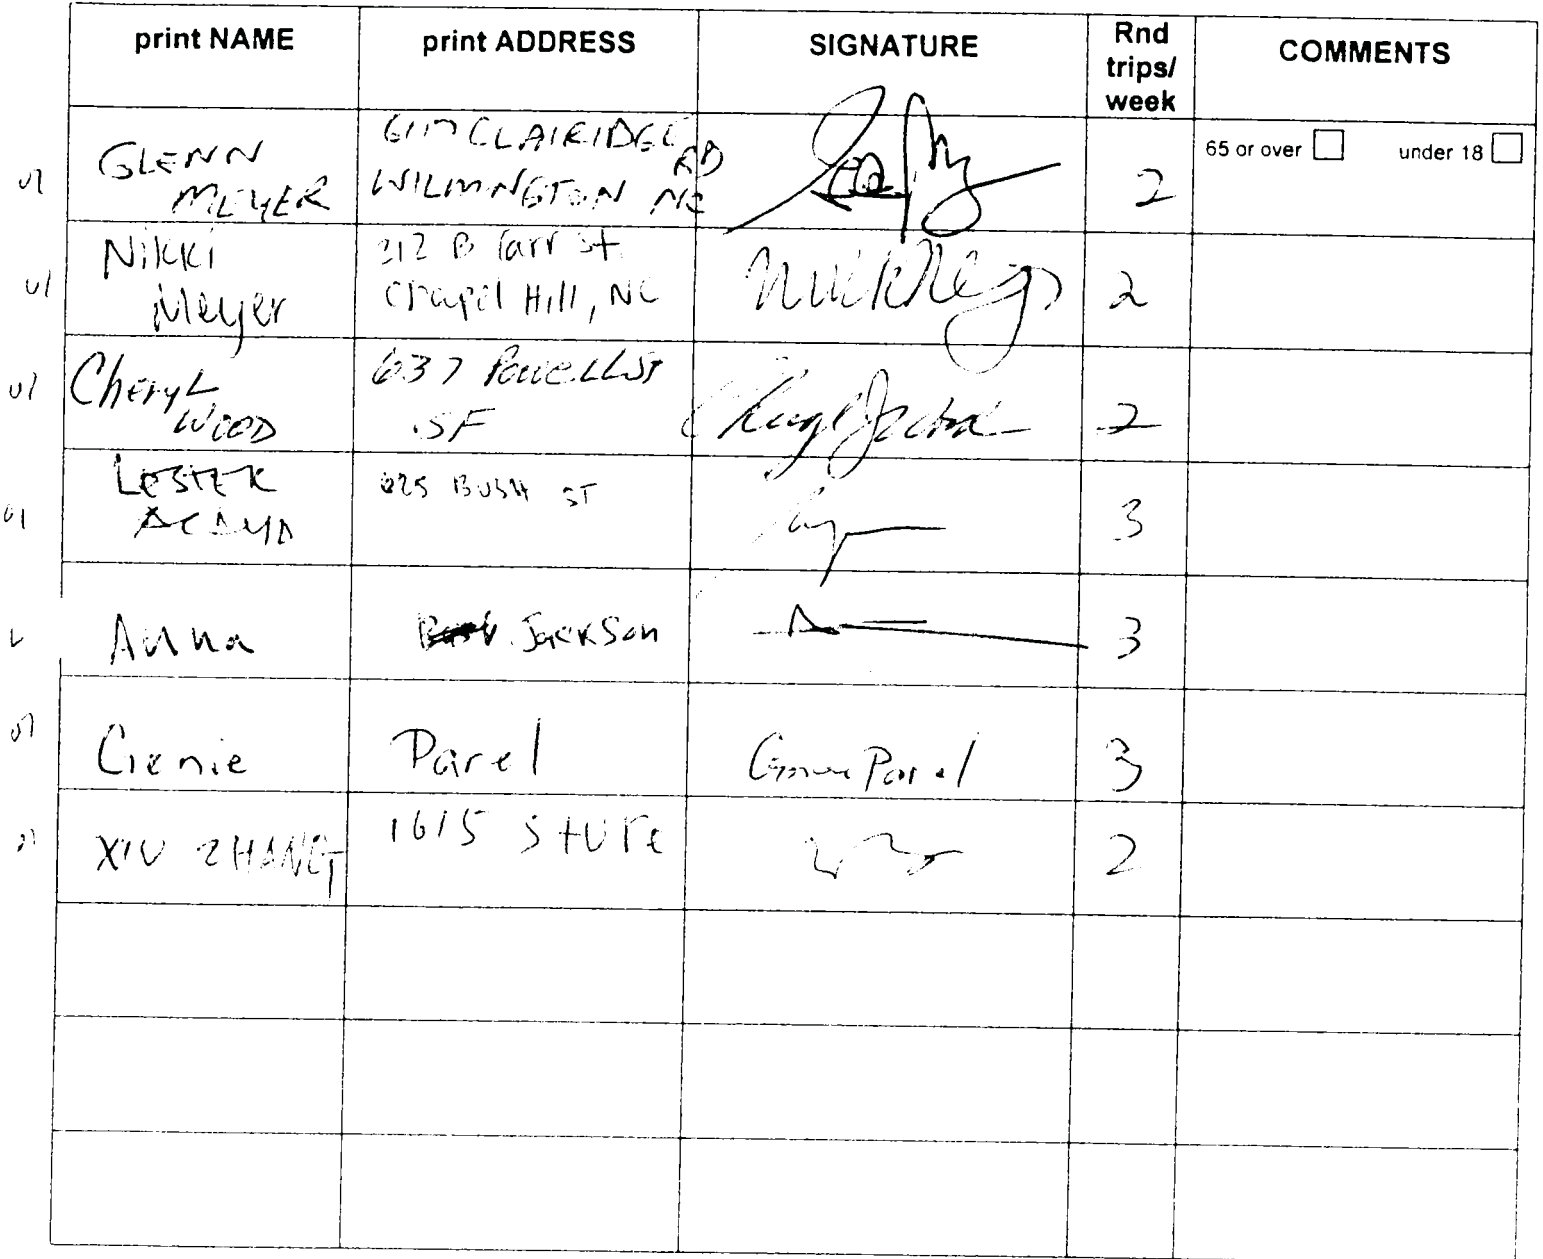 print NAME
print ADDRESS
SIGNATURE
Rnd
trips/
week
COMMENTS
GLENN
MEYER
CLAIRIDGE
RD
WILMINGTON NC
2
65 or over
under 18
Nikki
Meyer
212 B Carr St.
Chapel Hill, NC
2
Cheryl
WOOD
637 Powell St
SF
2
LESTER
625 BUSH ST
3
Anna
Jackson
3
Genie
Parel
Genie Parel
3
XIU ZHANG
1615
2